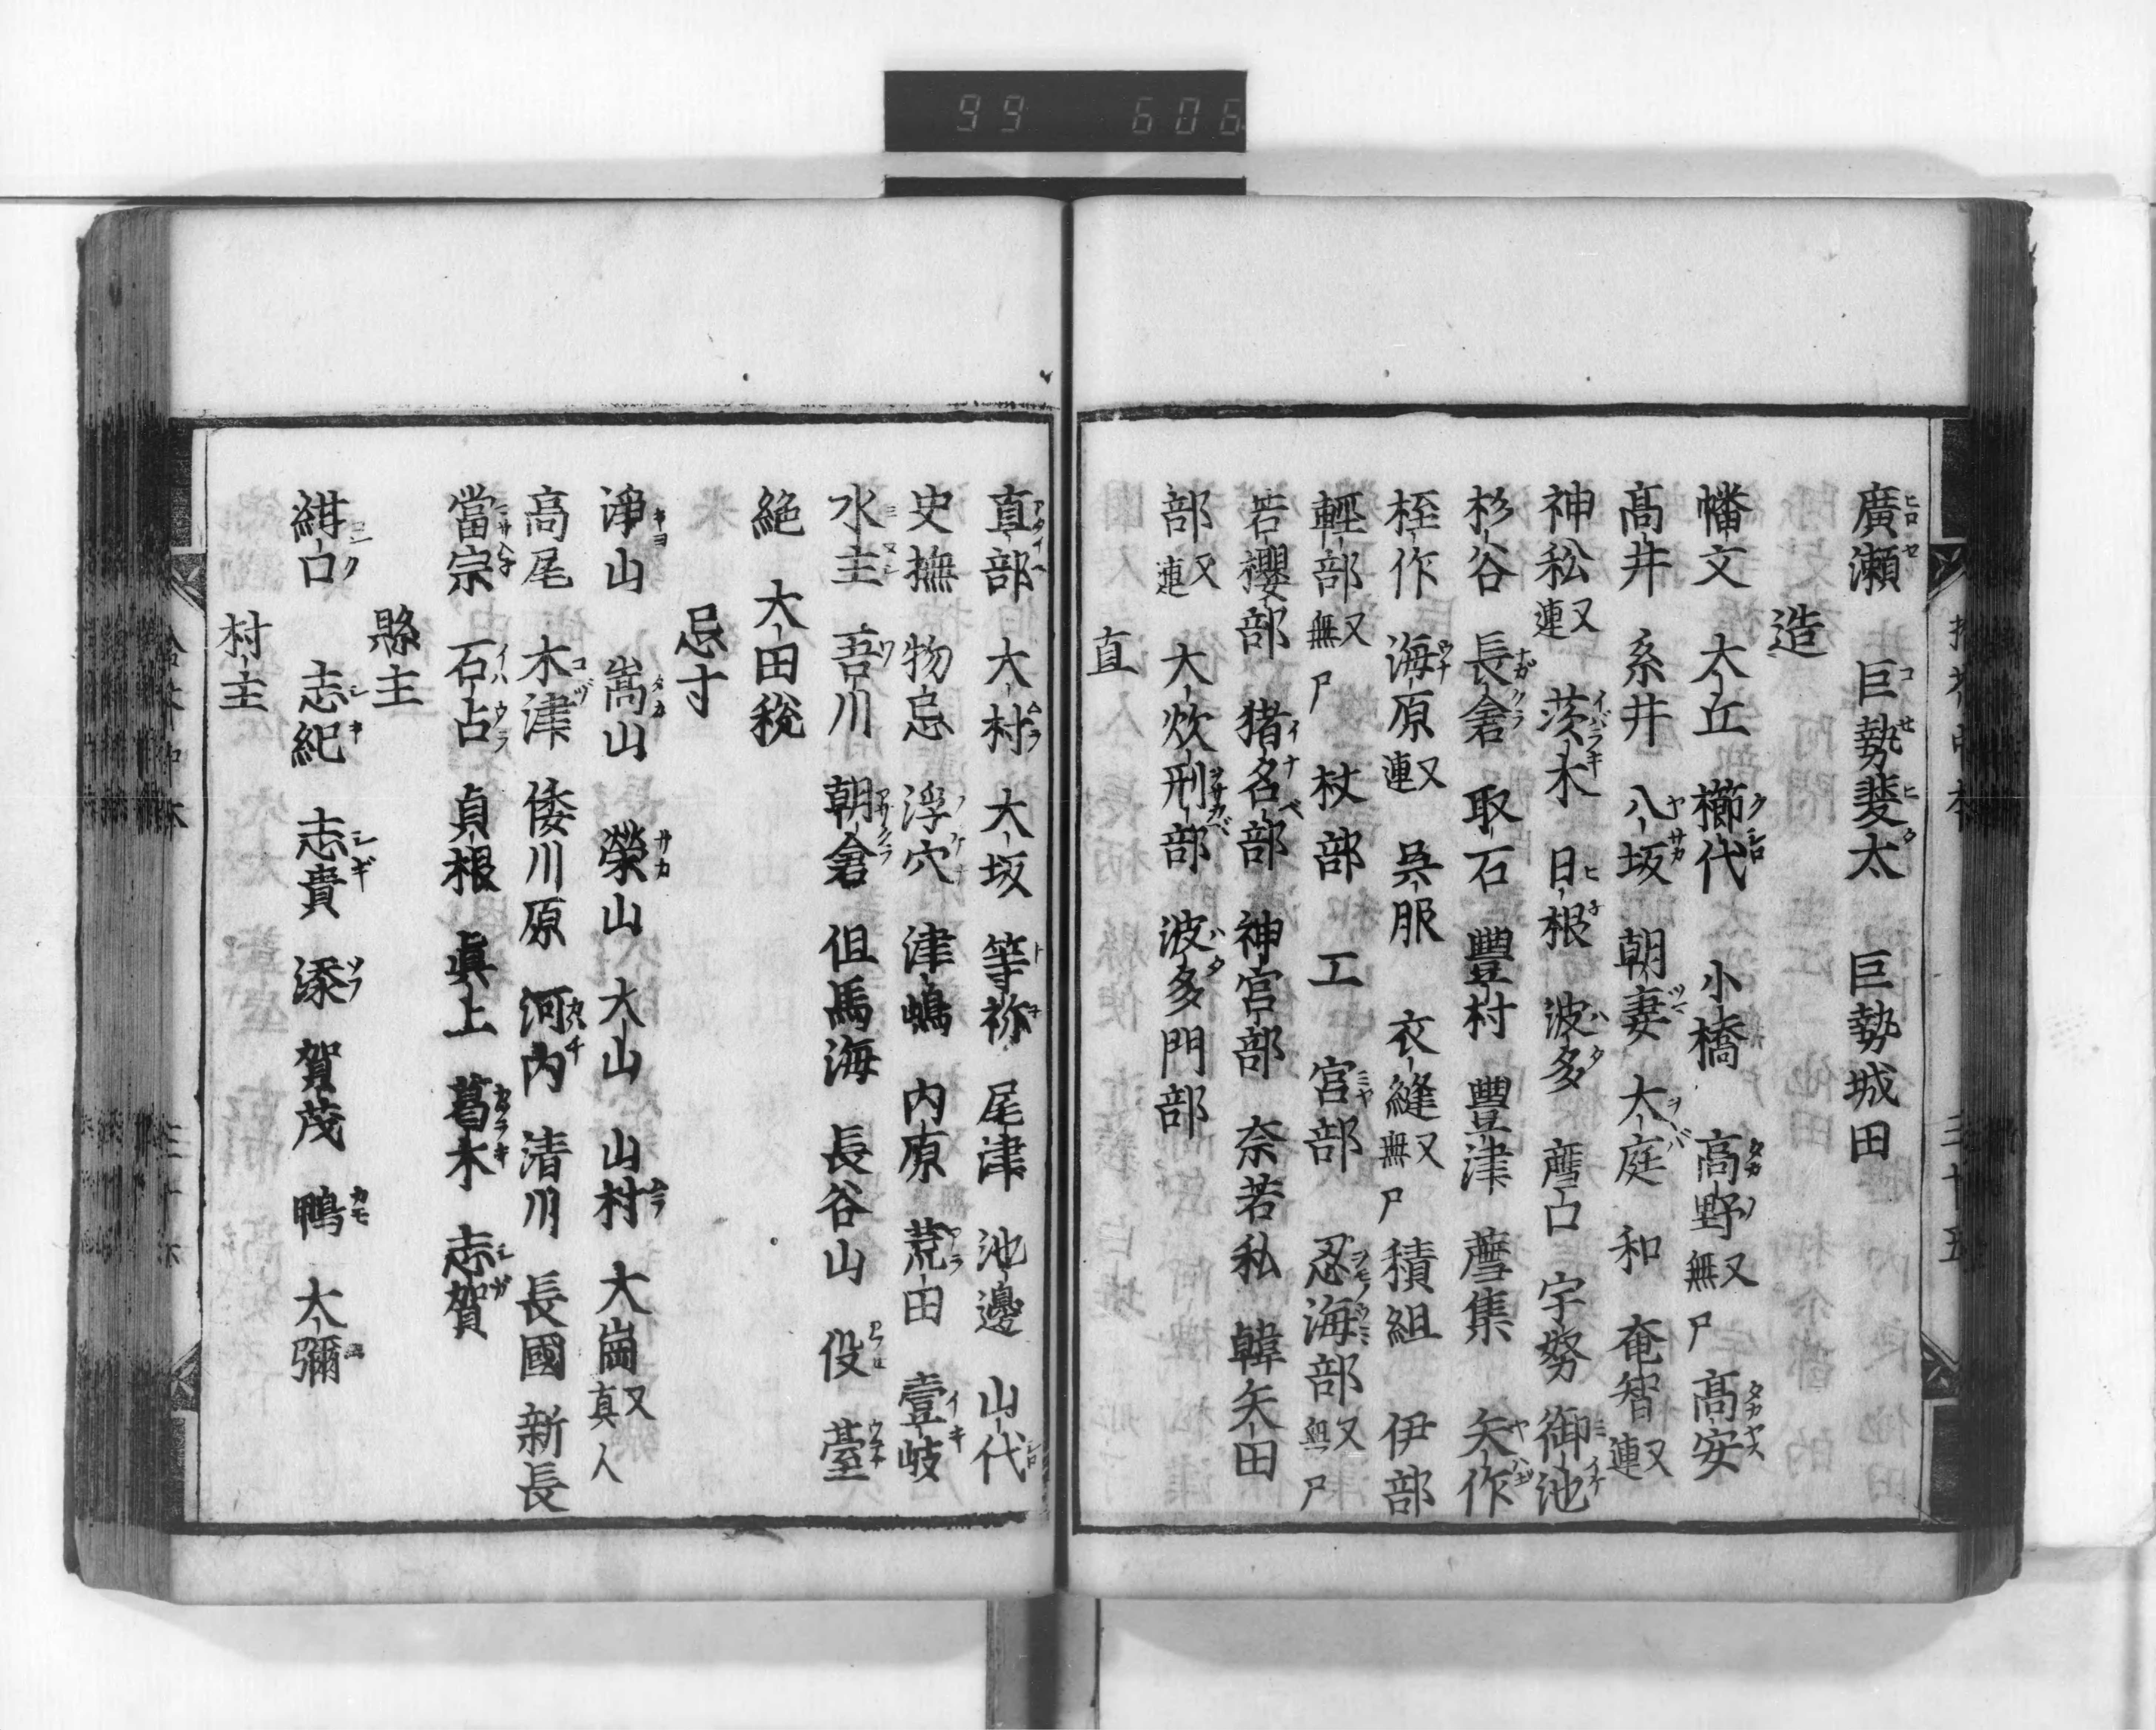 99 606
廣瀬 巨勢斐太 巨勢城田
造
幡文 大丘 櫛代 小橋 高野又無尸 髙安
髙井 糸井 八坂 朝妻 大庭 和 奄智又連
神私又連 茨木 日根 波多 宇努 御池
杉谷 長倉 取石 豊村 豊津 矢作
桎作 海原又連 呉服 衣縫又無尸 積組 伊部
輕部又無尸 杖部 工 宮部 忍海部又無尸
若櫻部 猪名部 神宮部 奈若私 韓矢田
部又連 大炊刑部 波多門部
直
直部 大村 大坂 等祢 尾津 池邊 山代
史撫 物忌 浮穴 津嶋 内原 荒田 壹岐
水主 吾川 朝倉 但馬海 長谷山 役 䑓
絶 大田税
忌寸
淨山 嵩山 榮山 大山 山村 大崗又真人
高尾 木津 倭川原 河内 清川 長國 新長
當宗 石占 貞根 眞上 葛木 志賀
縣主
紺口 志紀 志貴 添 賀茂 鴨 大彌
村主